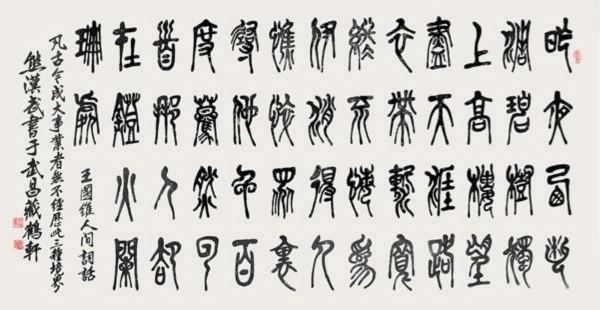 昨夜西風
凋碧樹獨
上高樓望
盡天涯路
衣帶漸寬
終不悔為
伊消得人
憔悴眾裏
尋他千百
度驀然回
首那人卻
在燈火闌
珊處
王國維人間詞話
凡古今成大事業者無不經歷此三種境界
熊漢武書于武昌藏鶴軒